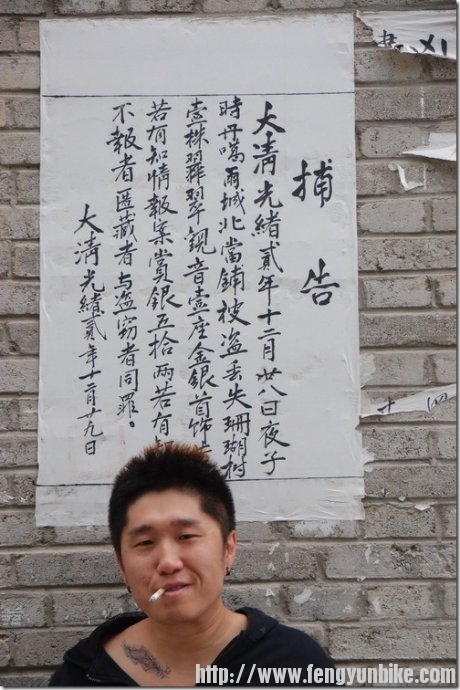 捕告
大清光緒貳年十二月廿八日夜子
時丹噶爾城北當鋪被盗丢失珊瑚树
壹株翡翠觀音壹座金銀首饰
若有知情報案賞銀五拾兩若有
不報者匿藏者与盗窃者同罪。
大清光緒貳年十二月廿九日
十四
http://www.fengyunbike.com